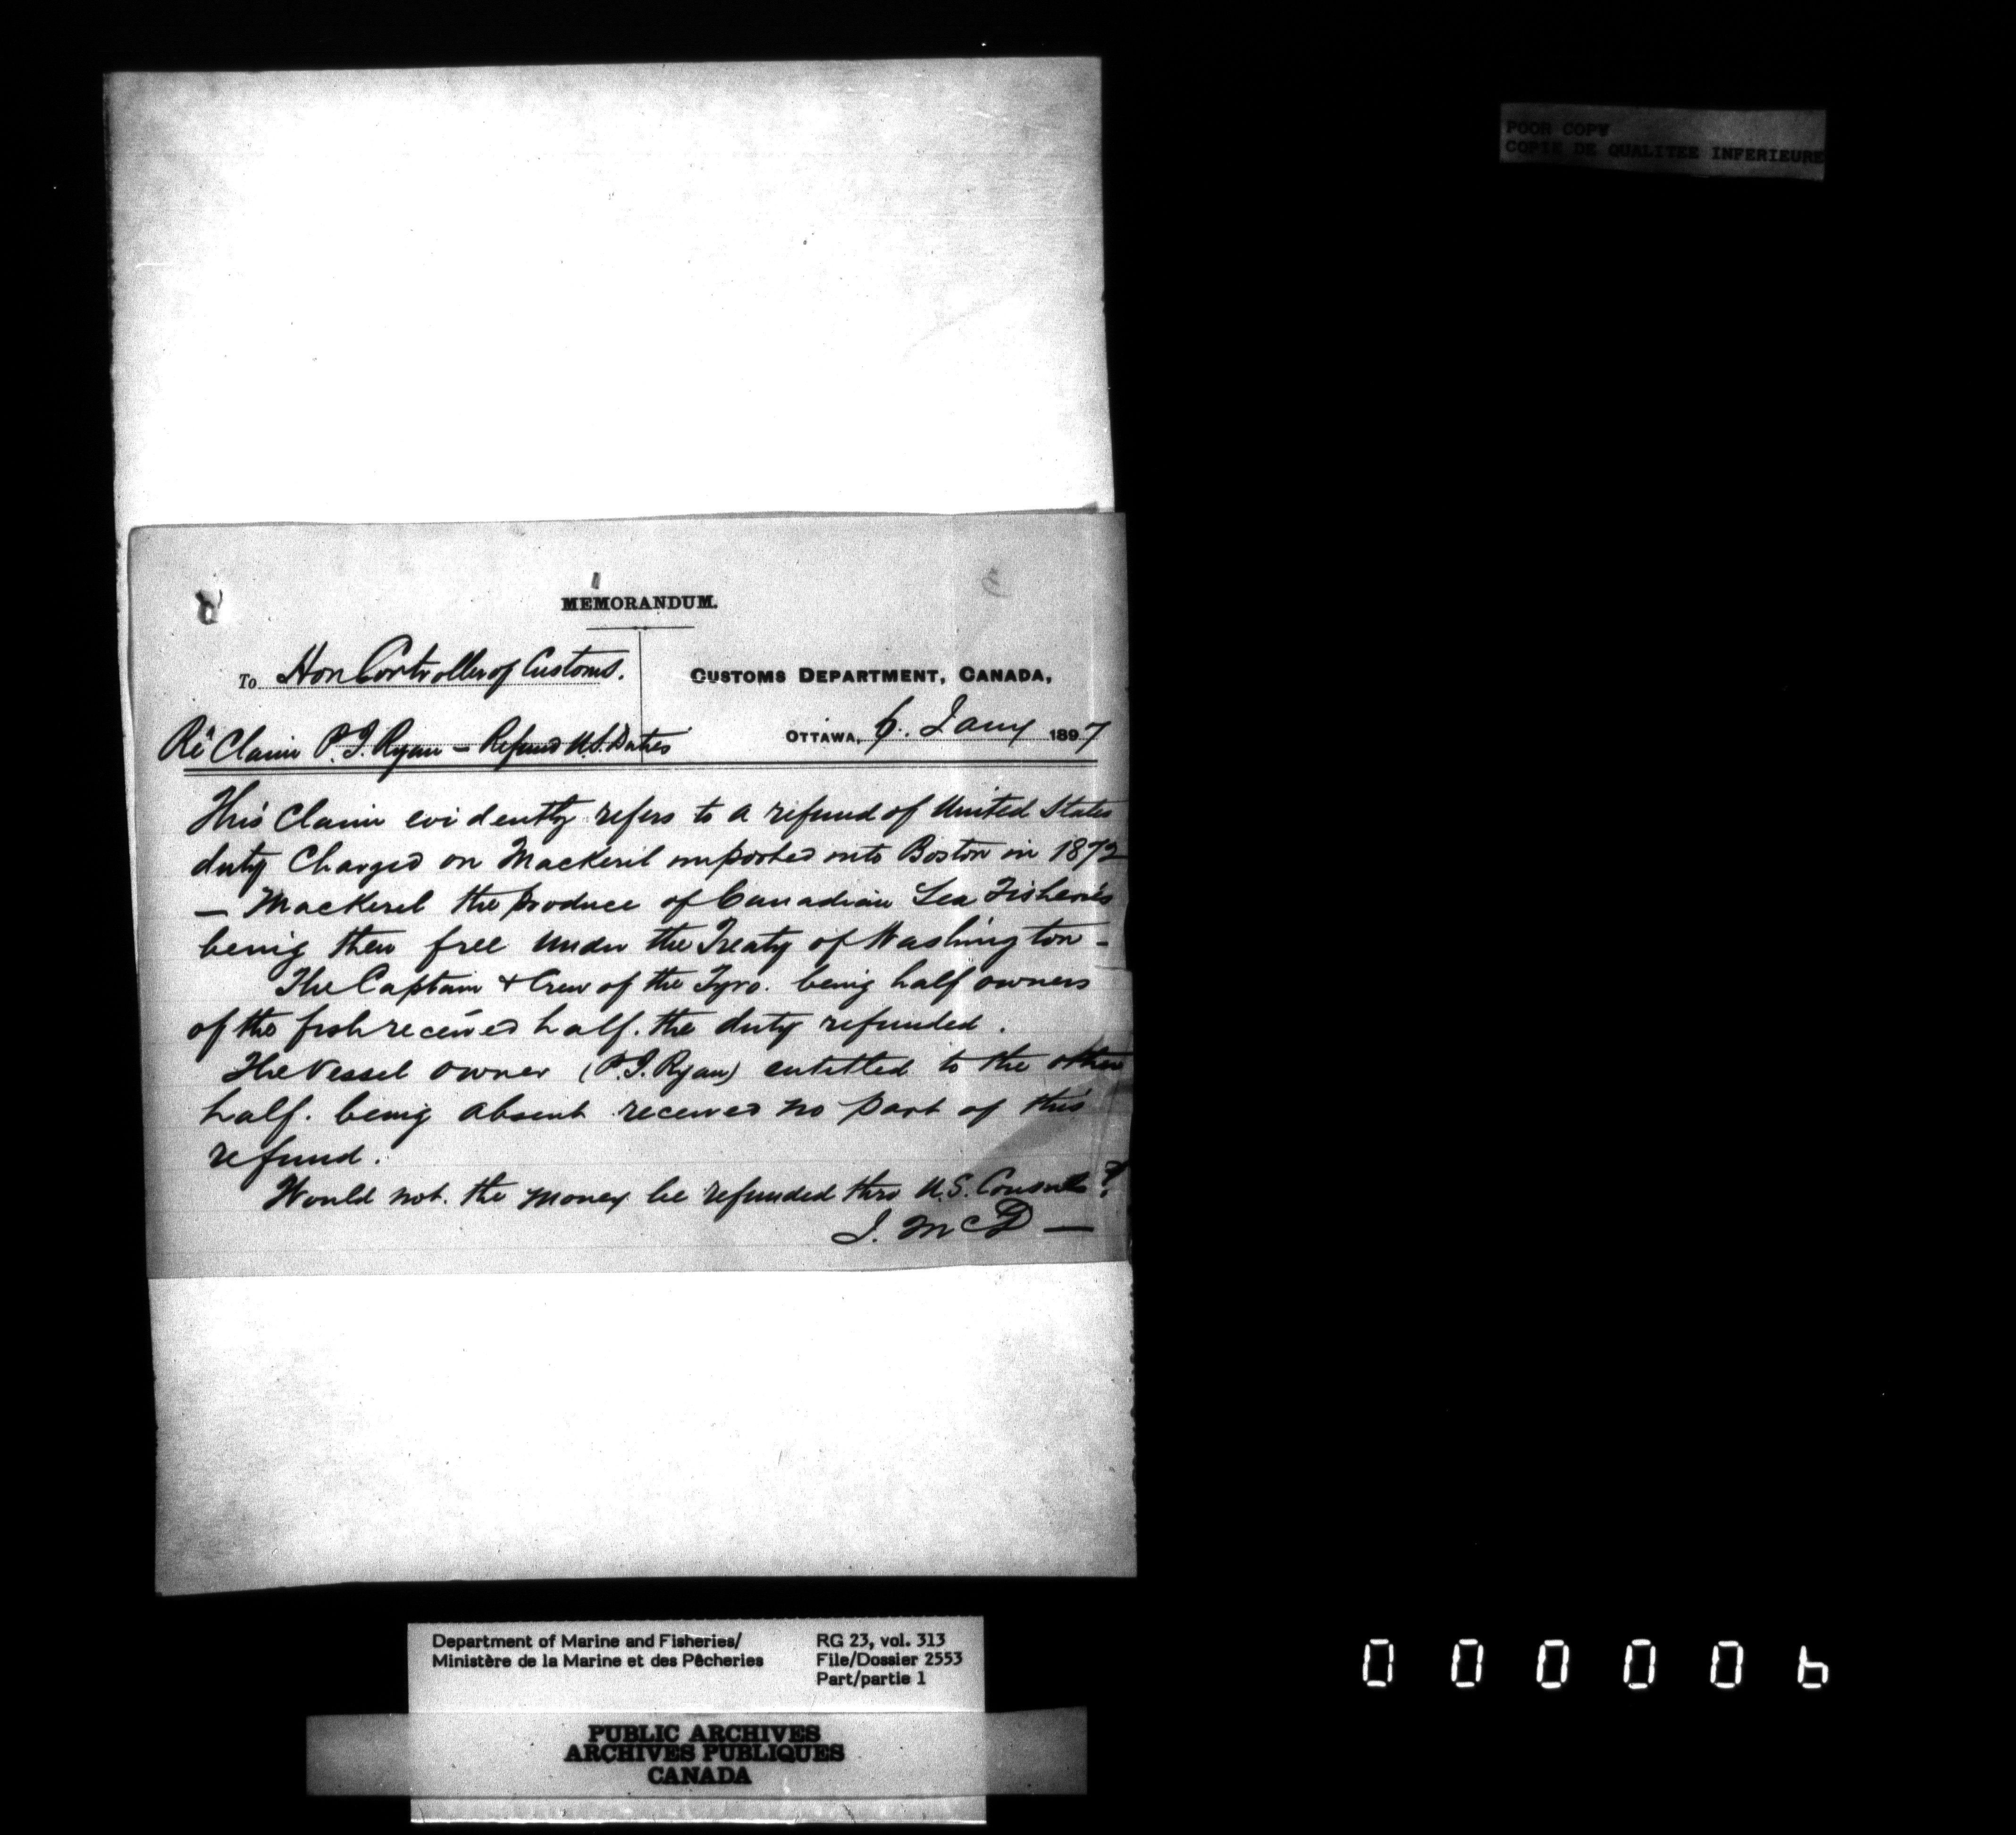 POOR COPY
COPIE DE QUALITEE INFERIEURE
MEMORANDUM.
To Hon Controller of Customs.
CUSTOMS DEPARTMENT, CANADA,
Re Claim P. J. Ryan – Refund U.S. Duties
OTTAWA, 6. Jany 1897
This Claim evidently refers to a refund of United States
duty Charged on Mackeril imported into Boston in 1872
— Mackerel the produce of Canadian Sea Fisheries
being then free under the Treaty of Washington –
The Captain & Crew of the Tyro. being half owners
of the fish received half. the duty refunded.
The Vessel owner (P. J. Ryan) entitled to the other
half. being absent received no part of this
refund.
Would not. the money be refunded thro U.S. Consuls?
J. McD —
Department of Marine and Fisheries/
Ministère de la Marine et des Pêcheries
RG 23, vol. 313
File/Dossier 2553
Part/partie 1
PUBLIC ARCHIVES
ARCHIVES PUBLIQUES
CANADA
000006